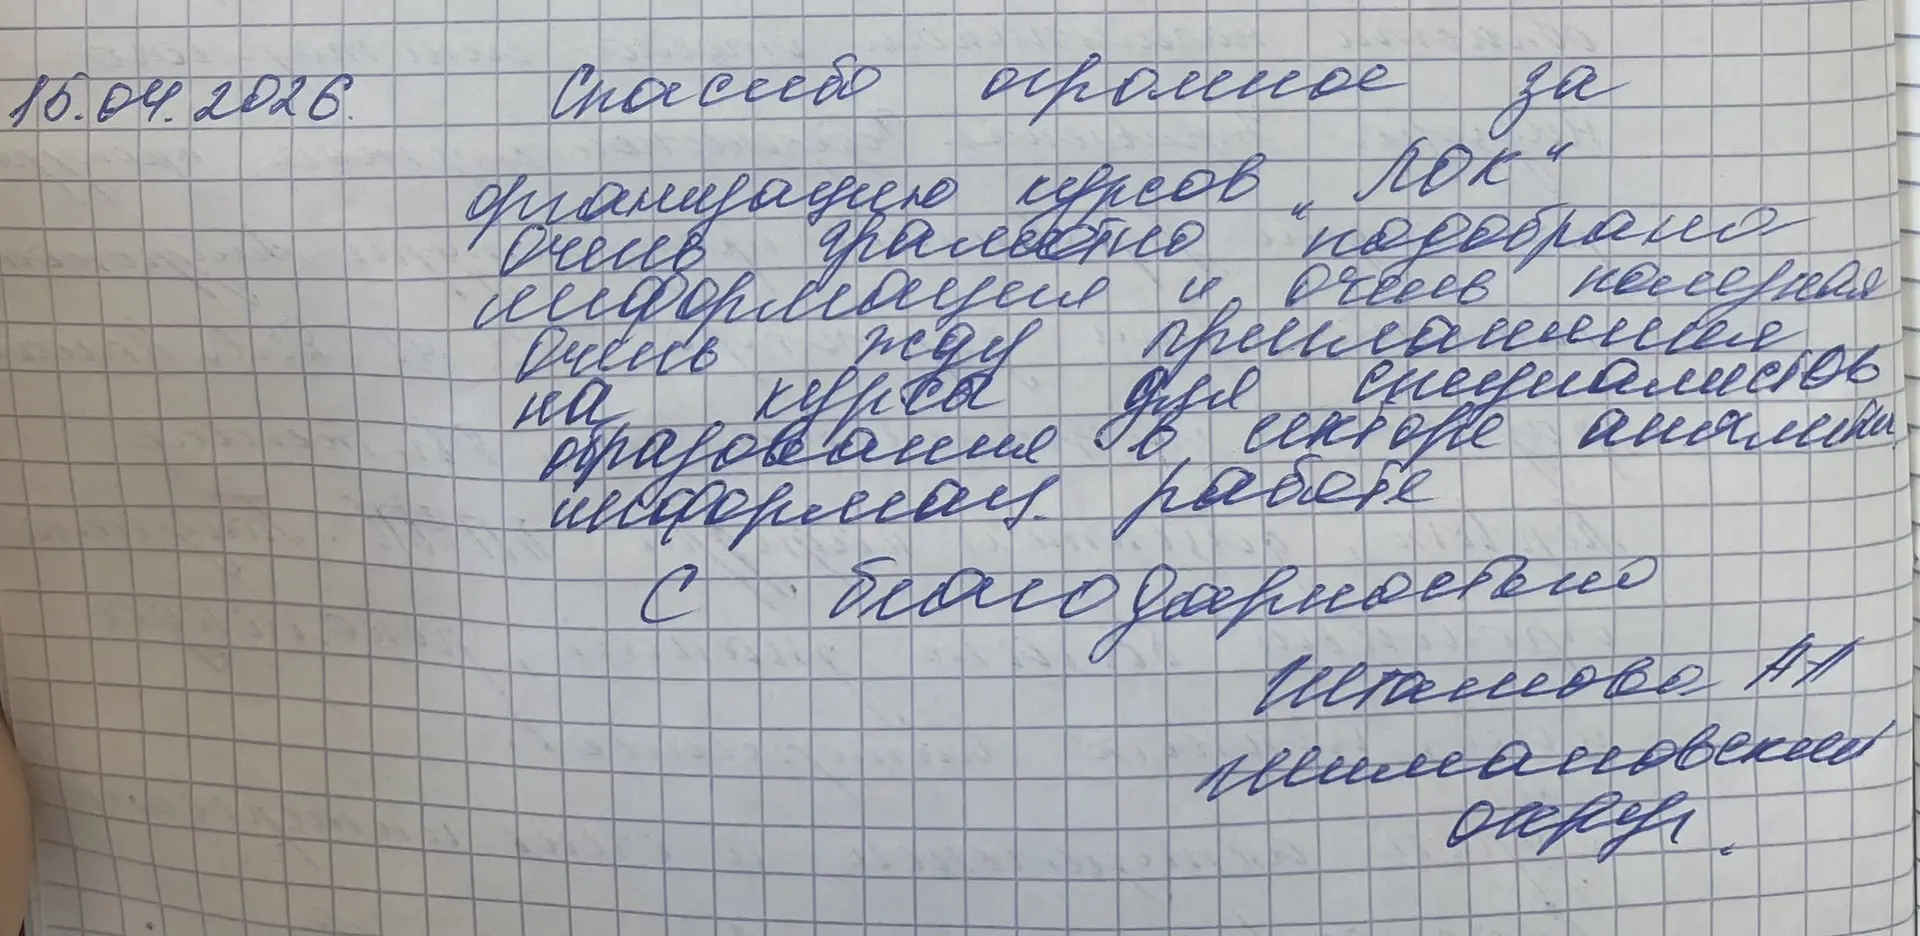 15.04.2026. Спасибо огромное за
организацию курсов „ЛОК“
очень грамотно подобрано
информация и очень полезная
Очень жду приглашения
на курсы для специалистов
образования в секторе
информац. работе
С благодарностью
АА
округ.